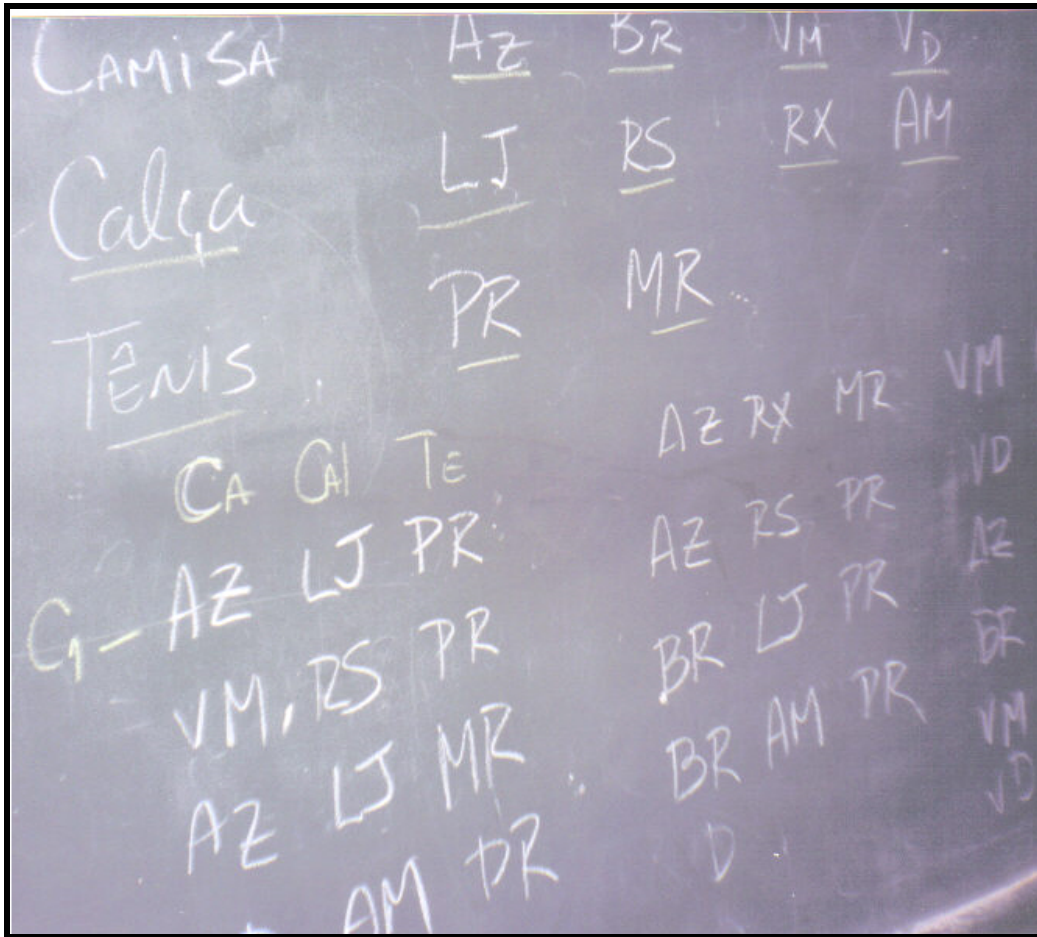 CAMISA AZ BR VM VD
Calça LJ RS RX AM
TÊNIS PR MR ...
CA CAl TE
C1 - AZ LJ PR
VM, RS PR
AZ LJ MR
AM PR
AZ RX MR
AZ RS PR
BR LJ PR
BR AM PR
VM
VD
AZ
BR
VM
VD